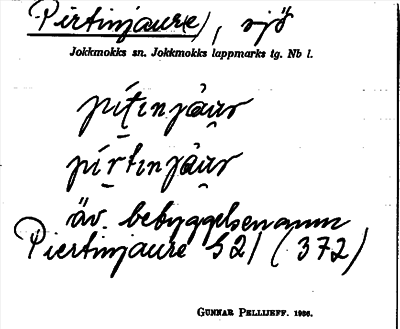 Pirtinjaur(e), sjö
Jokkmokks sn. Jokkmokks lappmarks tg. Nb l.
pítịnjàur
pírtịnjàur
äv. bebyggelsenamn
Piertinjaure S21 (372)
GUNNAR PELLIJEFF. 1936.